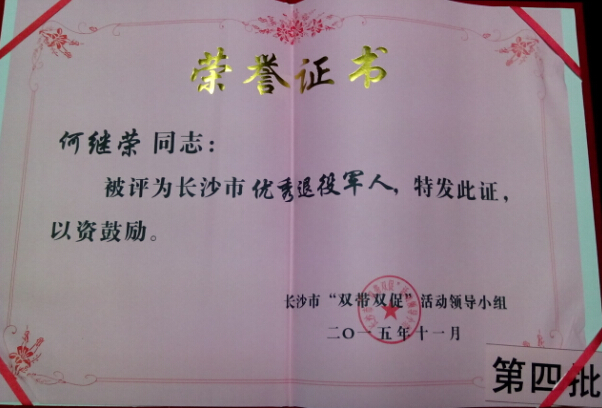 荣誉证书
何继荣 同志：
被评为长沙市优秀退役军人，特发此证，
以资鼓励。
长沙市“双带双促”活动领导小组
二〇一五年十一月
第四批